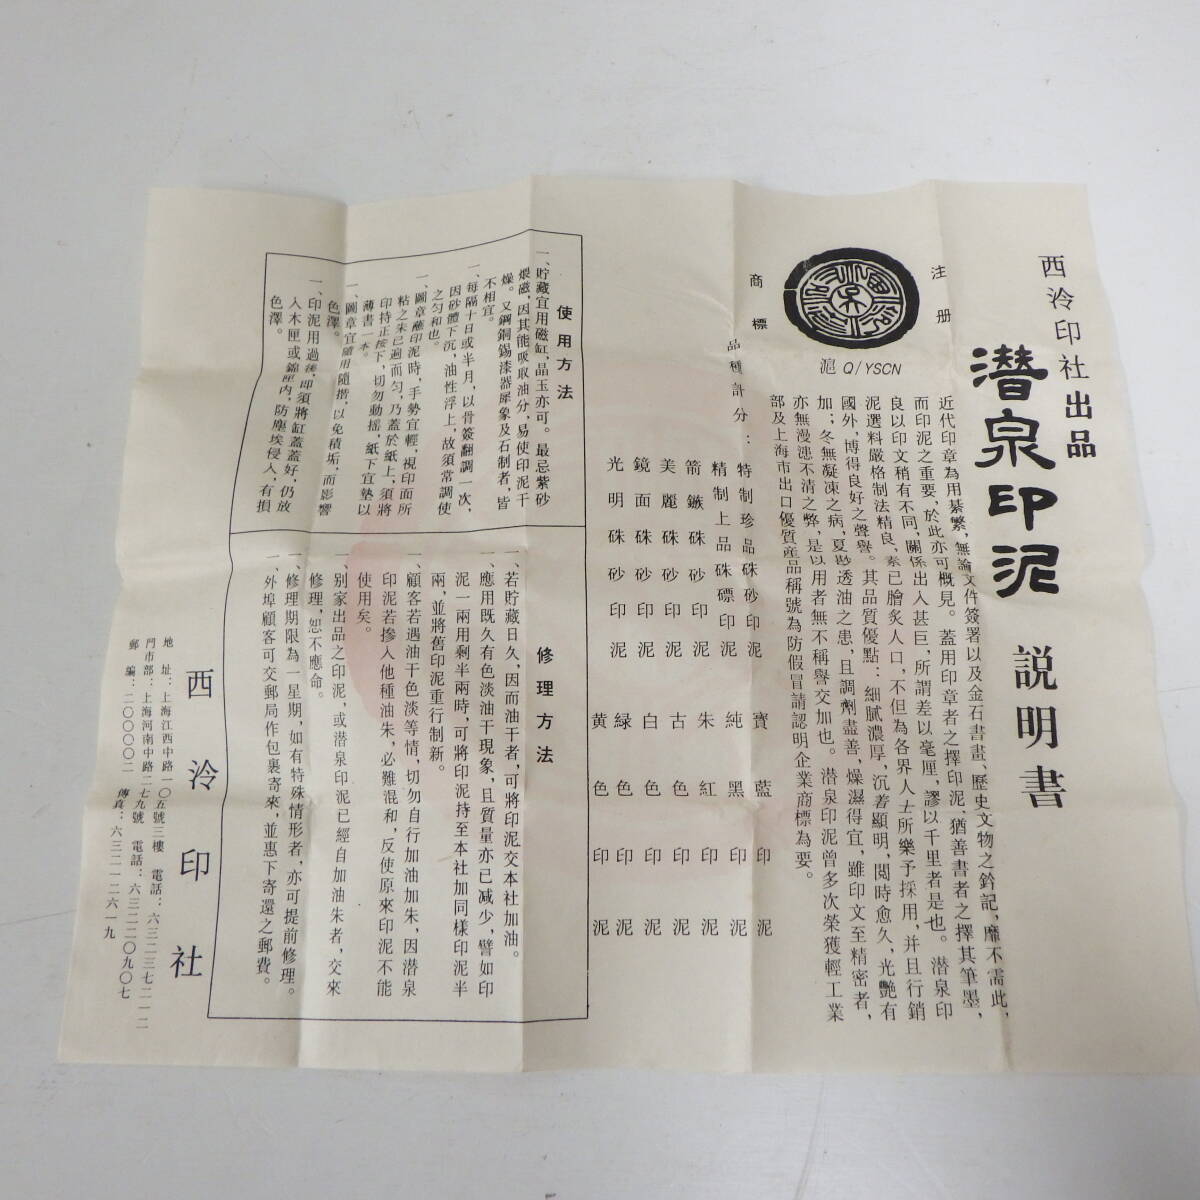 西泠印社出品
潜泉印泥 説明書
注册
商標
滬 Q/YSCN
近代印章為用綦繁，無論文件簽署以及金石書畫、歷史文物之鈐記，靡不需此，
而印泥之重要，於此亦可概見。蓋用印章者之擇印泥，猶善書者之擇其筆墨，
良以印文稍有不同，關係出入甚巨，所謂差以毫厘，謬以千里者是也。潜泉印
泥選料嚴格制法精良，素已膾炙人口，不但為各界人士所樂予採用，并且行銷
國外，博得良好之聲譽。其品質優點：細膩濃厚，沉着顯明，閱時愈久，光艷有
加；冬無凝凍之病，夏尠透油之患，且調劑盡善，燥濕得宜，雖印文至精密者，
亦無漫漶不清之弊，是以用者無不稱譽交加也。潜泉印泥曾多次榮獲輕工業
部及上海市出口優質産品稱號為防假冒請認明企業商標為要。
品種計分：
特制珍品硃砂印泥
精制上品硃磦印泥
箭鏃硃砂印泥
美麗硃砂印泥
鏡面硃砂印泥
光明硃砂印泥
寶藍印泥
純黑印泥
朱紅印泥
古色印泥
白色印泥
緑色印泥
黄色印泥
使用方法
一、貯藏宜用磁缸，晶玉亦可。最忌紫砂
煨磁，因其能吸取油分，易使印泥干
燥。又鋼銅錫漆器犀象及石制者，皆
不相宜。
一、每隔十日或半月，以骨簽翻調一次，
因砂體下沉，油性浮上，故須常調使
之匀和也。
一、圖章蘸印泥時，手勢宜輕，視印面所
粘之朱已遍而匀，乃蓋於紙上，須將
印持正按下，切勿動摇，紙下宜墊以
薄書一本。
一、圖章宜隨用隨揩，以免積垢，而影響
色澤。
一、印泥用過後，即須將缸蓋蓋好，仍放
入木匣或錦匣内，防塵埃侵入，有損
色澤。
修理方法
一、若貯藏日久，因而油干者，可將印泥交本社加油。
一、應用既久有色淡油干現象，且質量亦已减少，譬如印
泥一兩用剩半兩時，可將印泥持至本社加同樣印泥半
兩，並將舊印泥重行制新。
一、顧客若遇油干色淡等情，切勿自行加油加朱，因潜泉
印泥若掺入他種油朱，必難混和，反使原來印泥不能
使用矣。
一、别家出品之印泥，或潜泉印泥已經自加油朱者，交來
修理，恕不應命。
一、修理期限為一星期，如有特殊情形者，亦可提前修理。
一、外埠顧客可交郵局作包裹寄來，並惠下寄還之郵費。
西泠印社
地 址：上海江西中路一〇五號三樓 電話：六三二三七二一二
門市部：上海河南中路二七九號 電話：六三二二〇九〇七
郵 編：二〇〇〇〇二 傳真：六三二一二六一九